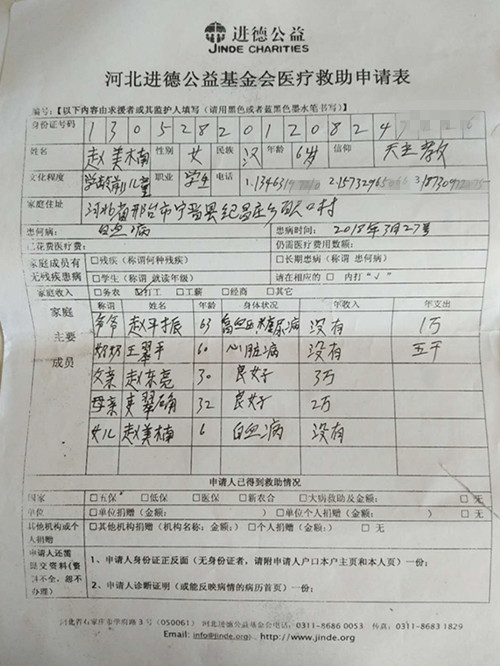 进德公益
JINDE CHARITIES
河北进德公益基金会医疗救助申请表
编号:【以下内容由求援者或其监护人填写(请用黑色或者蓝黑色墨水笔书写)】
身份证号码 1 3 0 5 2 8 2 0 1 2 0 8 2 4
姓名 赵美楠 性别 女 民族 汉 年龄 6岁 信仰 天主教
文化程度 学龄前儿童 职业 学生 电话
家庭住址 河北省邢台市宁晋县纪昌庄乡 村
患何病: 白血病 患病时间: 2018年3月27号
已花费医疗费: 仍需医疗费用数额:
家庭成员有无残疾患病 □残疾(称谓何种残疾) □长期患病(称谓 患何病)
□学生(称谓 就读年级) 请在相应的 □ 内打"√"
家庭收入 □务农 打工 □工薪 □经商 □其它
家庭主要成员 称谓 姓名 年龄 身体状况 年收入 年支出
爷爷 赵平振 63 高血糖尿病 没有 1万
奶奶 王翠平 60 心脏病 没有 五千
父亲 赵东亮 30 良好 3万
母亲 翠确 32 良好 2万
女儿 赵美楠 6 白血病 没有
申请人已得到救助情况
国家 □五保 □低保 □医保 □新农合 □大病救助及金额: □无
单位 □单位捐赠(金额: ) □单位个人捐赠(金额: ) □无
其他机构或个人捐赠 □其他机构捐赠(机构名称: 金额: ) □个人捐赠(金额: ) □ 无
申请人还需提交资料(资料不全,恕不办理) 1、申请人身份证正反面(无身份证者,请附申请人户口本户主页和本人页)一份;
2、申请人诊断证明(或能反映病情的病历首页)一份;
河北省石家庄市学府路3号(050061) 河北进德公益基金会电话: 0311-8686 0053 传真: 0311-8683 1829
Email: info@jinde.org; http://www.jinde.org